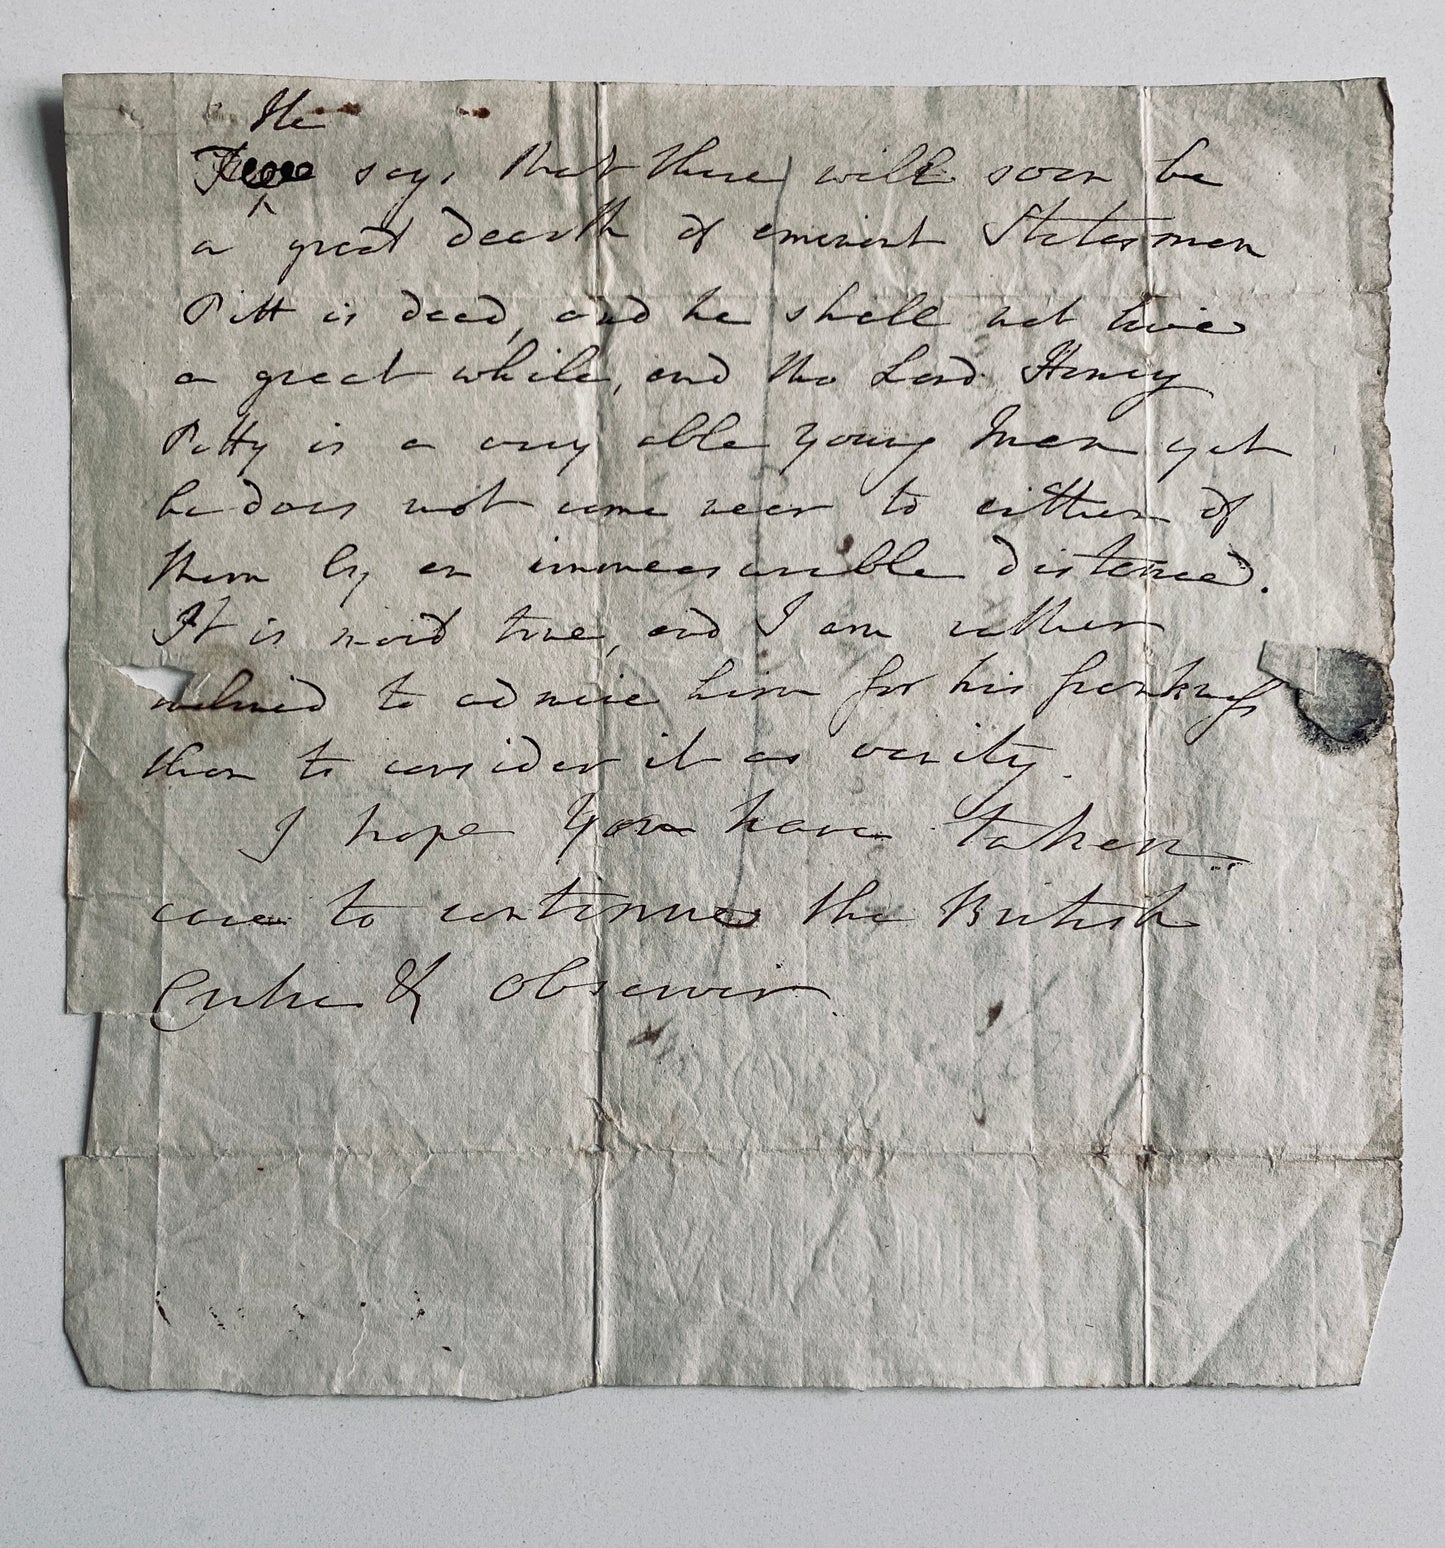 He
says that there will soon be
a great dearth of eminent Statesmen
Pitt is dead, and he shall not live
a great while, and tho Lord Henry
Petty is a very able young Man yet
he does not come near to either of
them by an immeasurable distance.
It is most true, and I am rather
inclined to admire him for his frankness
than to consider it as vanity.
I hope you have taken
care to continue the British
Critic & Observer.